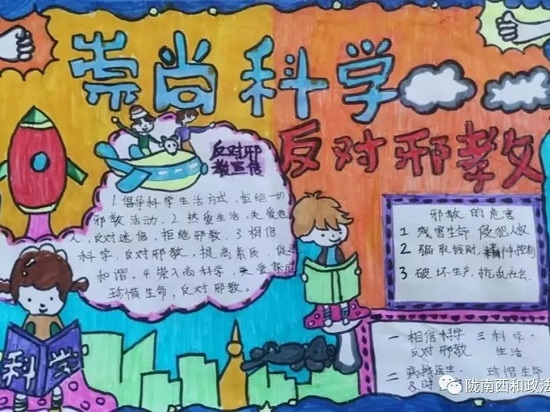 崇尚科学
反对邪教
反对邪
教宣传
1.倡导科学生活方式,拒绝一切
邪教活动.2.热爱生活,关爱他
人,反对迷信,拒绝邪教.3.相信
科学,反对邪教,提高素质,促进
和谐.4.崇尚科学,关爱家庭
珍惜生命,反对邪教.
邪教的危害
1 残害生命,侵犯人权
2 骗取钱财,精神控制
3 破坏生产,扰乱社会.
科学
一 相信科学
反对邪教
二
及时
三 科学
生活
珍惜生命
陇南西和政法